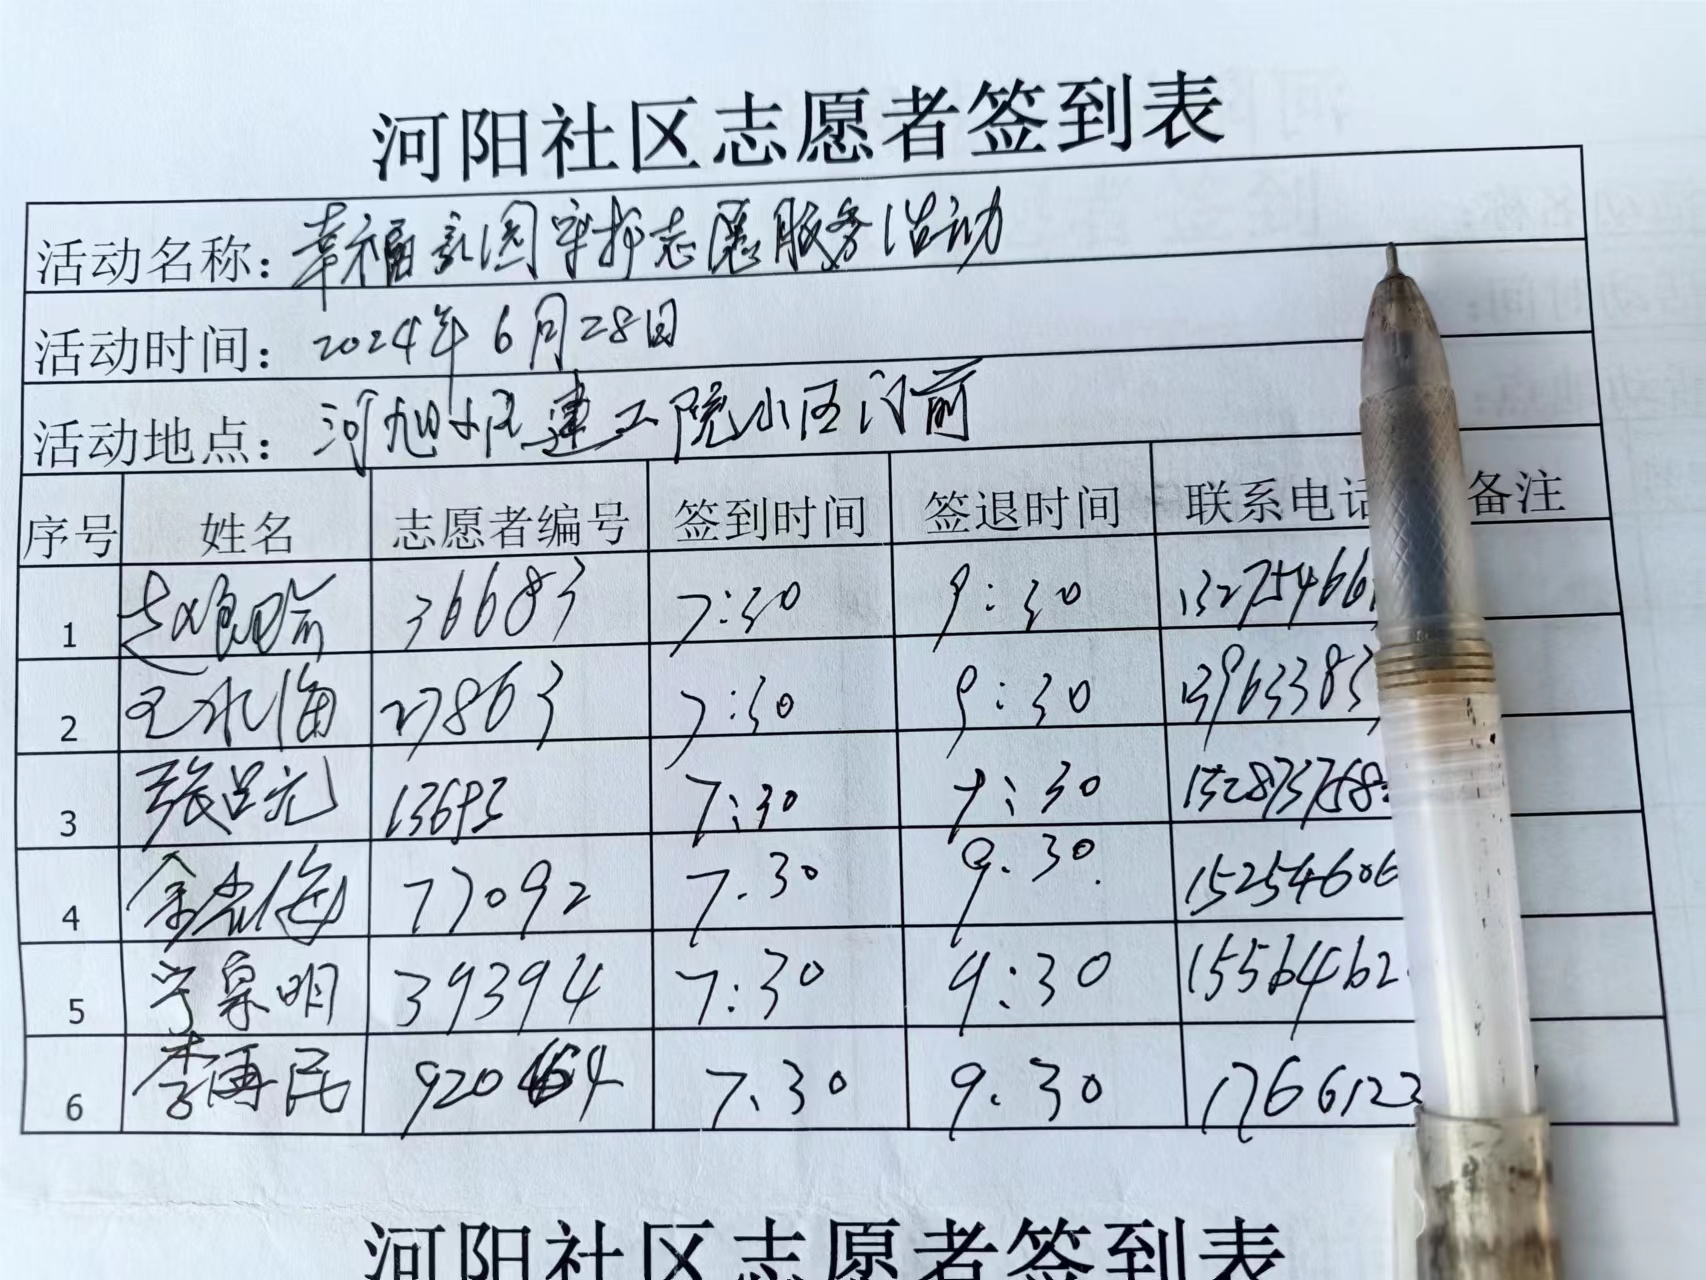 河阳社区志愿者签到表
活动名称：幸福家园守护志愿服务活动
活动时间：2024年6月28日
活动地点：河旭小区建工院小区门前
序号 姓名 志愿者编号 签到时间 签退时间 联系电话 备注
1 赵 36683 7:30 9:30 132754661
2 王永海 27863 7:30 9:30 13963383
3 张吕元 13693 7:30 9:30 152873758
4 金光海 77092 7.30 9.30. 15254606
5 宁泉明 39394 7:30 9:30 155646 2
6 李再民 920464 7.30 9.30 1766122
河阳社区志愿者签到表